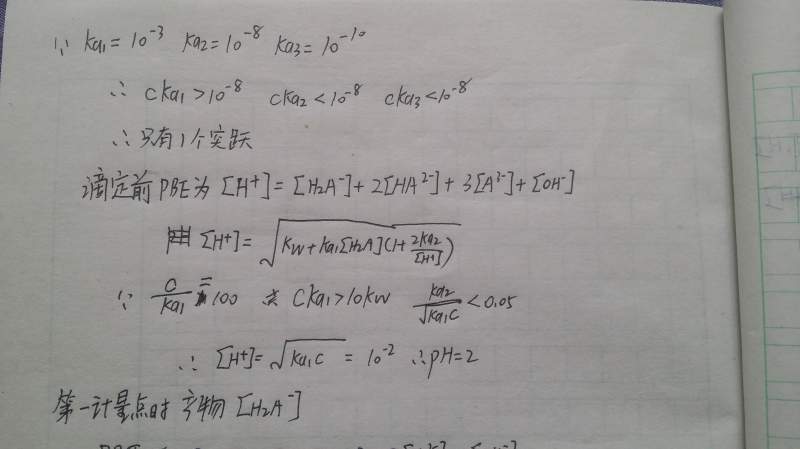 ∵ Ka₁ = 10⁻³ Ka₂ = 10⁻⁸ Ka₃ = 10⁻¹⁰
∴ cKa₁ > 10⁻⁸ cKa₂ < 10⁻⁸ cKa₃ < 10⁻⁸
∴ 只有1个突跃
滴定前PBE为 [H⁺] = [H₂A⁻] + 2[HA²⁻] + 3[A³⁻] + [OH⁻]
[H⁺] = √(Kw + Ka₁[H₂A](1 + 2Ka₂/[H⁺]))
∵ c/Ka₁ = 100 cKa₁ > 10Kw Ka₂/√(Ka₁c) < 0.05
∴ [H⁺] = √(Ka₁c) = 10⁻² ∴ pH = 2
第一计量点时 产物 [H₂A⁻]